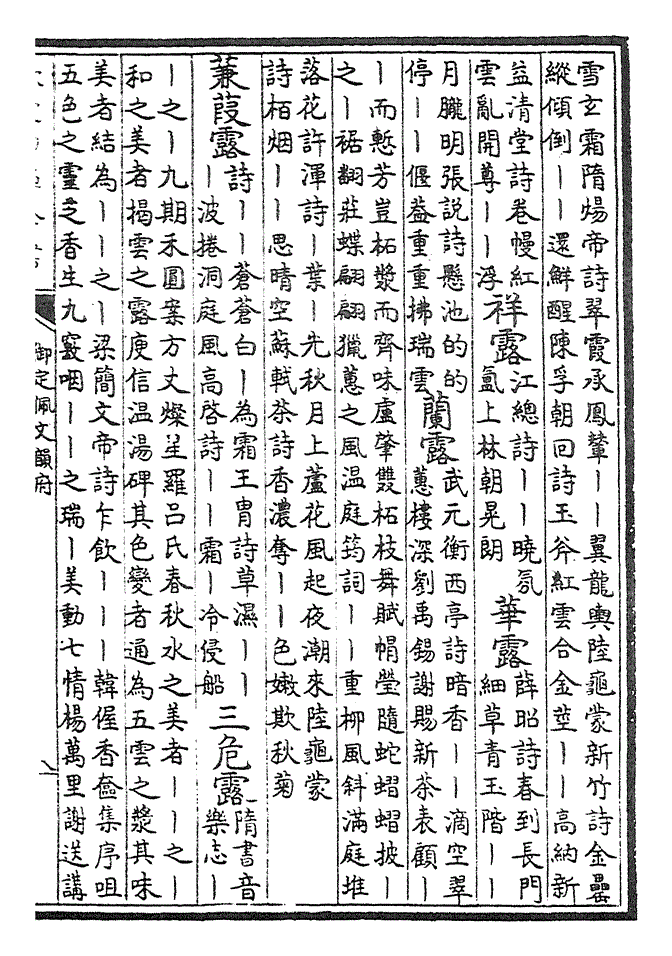 雪玄霜隋煬帝詩翠霞承鳳輦丨丨翼龍輿陸龜蒙新竹詩金罍
縱傾倒丨丨還鮮醒陳孚朝回詩玉斧紅雲合金莖丨丨高納新
益清堂詩卷幔紅
雲亂開尊丨丨浮
祥露
江總詩丨丨曉氛
氳上林朝晃朗
華露
薛昭詩春到長門
細草青玉階丨丨
月朧明張說詩懸池的的
停丨丨偃蓋重重拂瑞雲
蘭露
武元衡西亭詩暗香丨丨滴空翠
蕙樓深劉禹錫謝賜新茶表顧丨
丨而慙芳豈柘漿而齊味盧肇雙柘枝舞賦帽瑩隨蛇熠熠披丨
之丨裾翻莊蝶翩翩獵蕙之風温庭筠詞丨丨重柳風斜滿庭堆
落花許渾詩丨葉丨先秋月上蘆花風起夜潮來陸龜蒙
詩栢烟丨丨思晴空蘇軾茶詩香濃奪丨丨色嫩欺秋菊
蒹葭露
詩丨丨蒼蒼白丨為霜王胄詩草濕丨丨
丨波捲洞庭風高啓詩丨丨霜丨冷侵船
三危露
隋書音
樂志丨
丨之丨九期禾圓案方丈燦坒羅吕氏春秋水之美者丨丨之丨
和之美者揭雲之露庾信温湯碑其色變者通為五雲之漿其味
美者結為丨丨之丨梁簡文帝詩乍飲丨丨丨韓偓香奩集序咀
五色之靈芝香生九竅咽丨丨之瑞丨美動七情楊萬里謝送講
御定佩文韻府